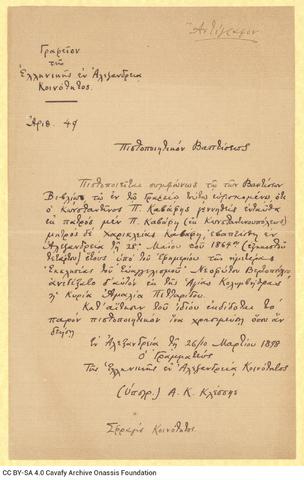 Ἀντίγραφον
Γραφεῖον
τῆς
Ἑλληνικῆς ἐν Ἀλεξανδρείᾳ
Κοινότητος.
Ἀριθ. 49
Πιστοποιητικὸν Βαπτίσεως
Πιστοποιεῖται συμφώνως τῷ τῶν Βαπτίσεων
Βιβλίῳ τῷ ἐν τῷ Γραφείῳ τούτῳ εὑρισκομένῳ ὅτι
ὁ Κωνσταντῖνος Π. Καβάφης γεννηθεὶς ἐνταῦθα
ἐκ πατρὸς μὲν Π. Καβάφη (ἐκ Κωνσταντινουπόλεως)
μητρὸς δὲ Χαρικλείας Καβάφη, ἐβαπτίσθη ἐν
Ἀλεξανδρείᾳ τῇ 25ῃ Μαΐου τοῦ 1864ου (ἑξηκοστοῦ
τετάρτου) ἔτους ὑπὸ τοῦ Ἐφημερίου τῆς ἡμετέρας
Ἐκκλησίας τοῦ Εὐαγγελισμοῦ
ἀνεδέξατο δ' αὐτὸν ἐκ τῆς Ἁγίας Κολυμβήθρας
ἡ Κυρία Ἀμαλία
Κατ' αἴτησιν τοῦ ἰδίου ἐκδίδοται τὸ
παρὸν πιστοποιητικὸν ἵνα χρησιμεύσῃ ὅπου ἂν
δεήσῃ
Ἐν Ἀλεξανδρείᾳ τῇ 26/10 Μαρτίου 1898
Ὁ Γραμματεὺς
Τῆς Ἑλληνικῆς ἐν Ἀλεξανδρείᾳ Κοινότητος
(Ὑπογρ.) Α. Κ.
Σφραγὶς Κοινότητος.
CC BY-SA 4.0 Cavafy Archive Onassis Foundation